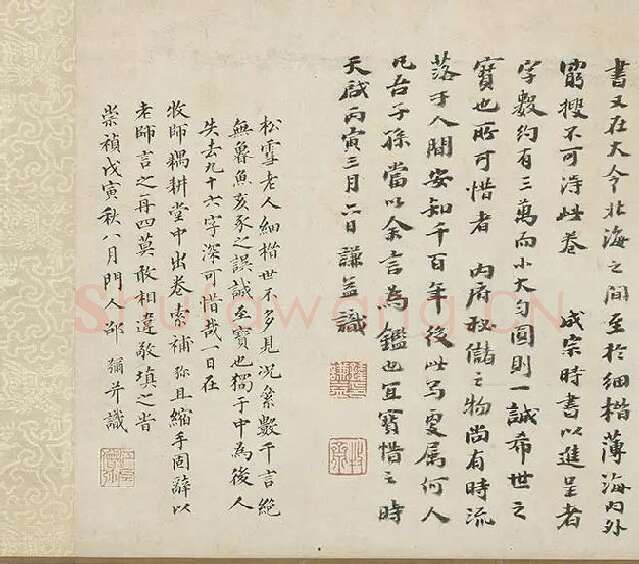 書又在大令北海之間至於細楷薄海內外
窮搜不可得此卷 成宗時書以進呈者
字數約有三萬而小大勻圓則一誠希世之
寶也所可惜者 內府秘儲之物尚有時流
落于人間安知千百年後此寫更屬何人
凡吾子孫當以余言為鑑也宜寶惜之時
天啟丙寅三月六日謙益識
松雪老人細楷世不多見況纍數千言絕
無魯魚亥豕之誤誠至寶也獨于中為後人
失去九十六字深可惜哉一日在
牧師耦耕堂中出卷索補弥且縮手固辭以
老師言之再四莫敢相違敬填之皆
崇禎戊寅秋八月門人邵彌并識
Shufawang.CN